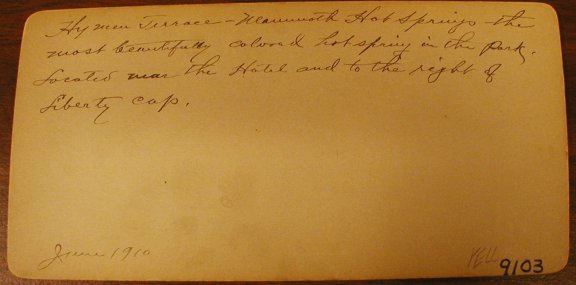 Hymen Terrace - Mammoth Hot Springs - the
most beautifully colored hot spring in the Park.
Located near the Hotel and to the right of
Liberty cap.
June 1910
YELL
9103